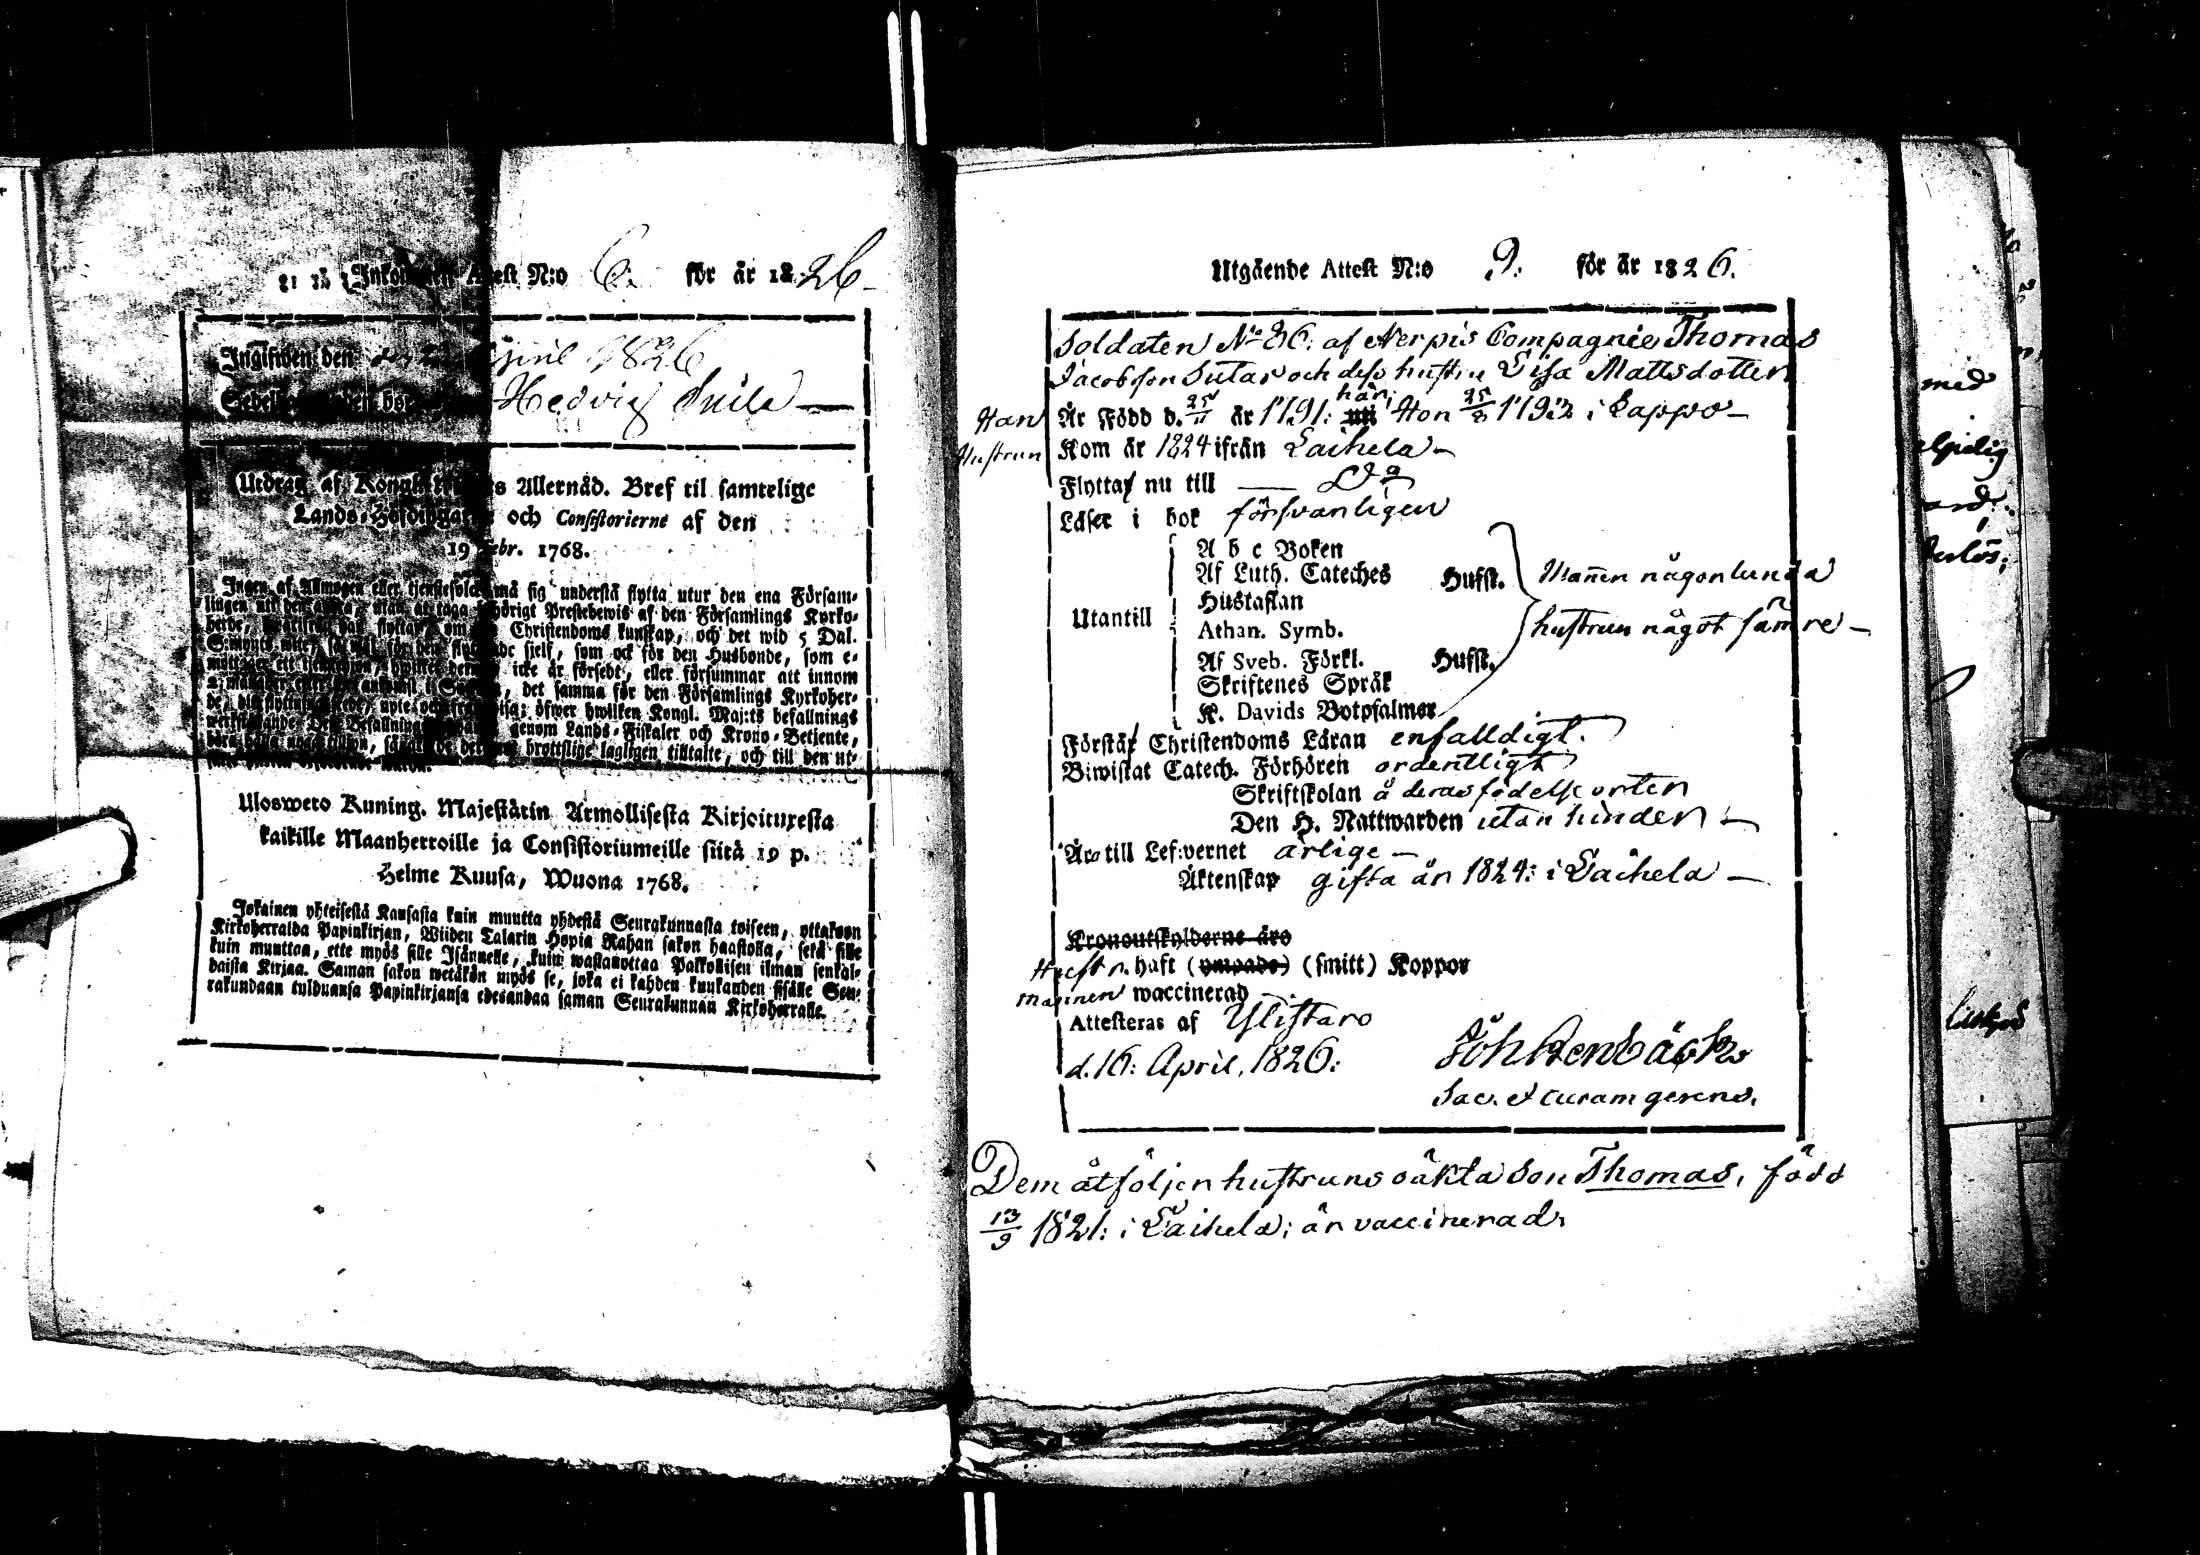 Inkommen Attest N:o 6. för år 1826
Ingifwen den April 1826
Hedvig Snile
Utdrag af Kongl. Allernåd. Bref til samtelige
Lands-Höfdingar och Consistorierne af den
19 Febr. 1768.
Ingen af Allmogen eller tjenstefolck må sig understå flytta utur den ena Försam-
lingen uti den andra, utan at taga behörigt Prestebewis af den Församlings Kyrko-
herde, hwarifrån han flyttar, om Christendoms kunskap, och det wid 5 Dal.
sielf, som ock för den Husbonde, som e-
icke är försedt, eller försummar att innom
det samma för den Församlings Kyrkoher-
öfwer hwilken Kongl. Maj:ts befallnings
genom Lands-Fiskaler och Krono-Betjente,
brottslige lagligen tilltalte, och till den ut-
Ulosweto Kuning. Majestätin Armollisesta Kirjoituxesta
kaikille Maanherroille ja Consistoriumeille siitä 19 p.
Helme Kuusa, Wuona 1768.
Jokainen yhteisestä Kansasta kuin muutta yhdestä Seurakunnasta toiseen, ottakoon
Kirkoherralda Papinkirjan, Wiiden Talarin Hopia Rahan sakon haastolla, setä sille
kuin muuttaa, ette myös sille Isännelle, kuin wastanottaa Palkollisen ilman senkal-
daista Kirjaa. Saman sakon wetäkön myös se, joka ei kahden kuukauden sisälle Seu-
rakundaan tulduansa Papinkirjansa edesandaa saman Seurakunnan Kirkoherralle.
Utgående Attest N:o 9. för år 1826.
Soldaten No 86: af Nerpis Compagnie Thomas
Jacobsson Sutar och dess hustru Lisa Mattsdotter
Han Är Född d. 25/11 år 1791: här, Hon 25/8 1792 i Lappo
Hustrun Kom år 1824 ifrån Laihela
Flytta nu till
Läser i bok försvarligen
A b c Boken
Af Luth. Cateches Hufst. Mannen någorlunda
Hustaflan
Utantill Athan. Symb. hustrun något sämre
Af Sveb. Förkl. Hufst.
Skriftenes Språk
K. Davids Botpsalmer
Förstår Christendoms Läran enfalldigt.
Biwistat Catech. Förhören ordentligt
Skriftskolan å deras födelse orten
Den H. Nattwarden utan hinder
Äro till Lefvernet ärlige
Äktenskap gifta år 1824: i Laihela
Kronoutskylderne äro
Hustr. haft (ympade) (smitt) Koppor
Mannen waccinerad
Attesteras af Ylistaro
d. 16: April, 1826: Joh Stenbäck
Sac. et curam gerens.
Dem åtföljer hustruns oäkta son Thomas, född
13/9 1821: i Laihela; är vaccinerad.
med